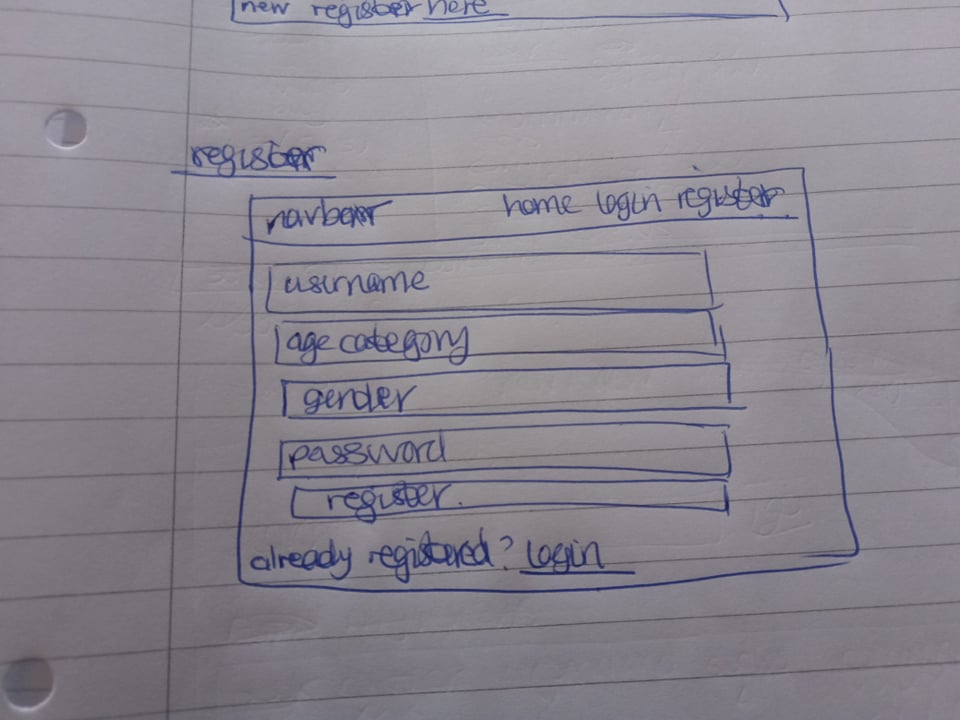 new register here
register
navbar home login register
username
age category
gender
password
register.
already registered? login